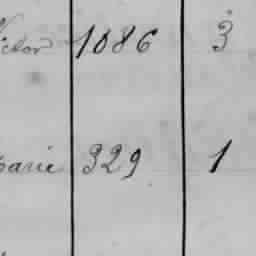 ictor 1086 3
arie 329 1